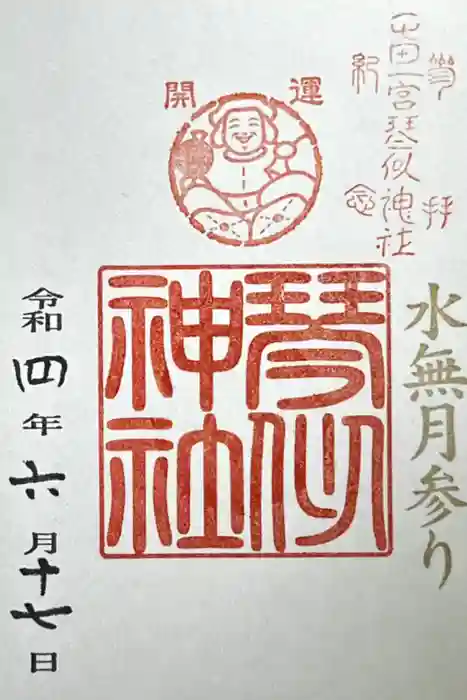 參拝
屯田一宮琴似神社
紀念
水無月参り
開運
琴似
神社
令和四年六月十七日